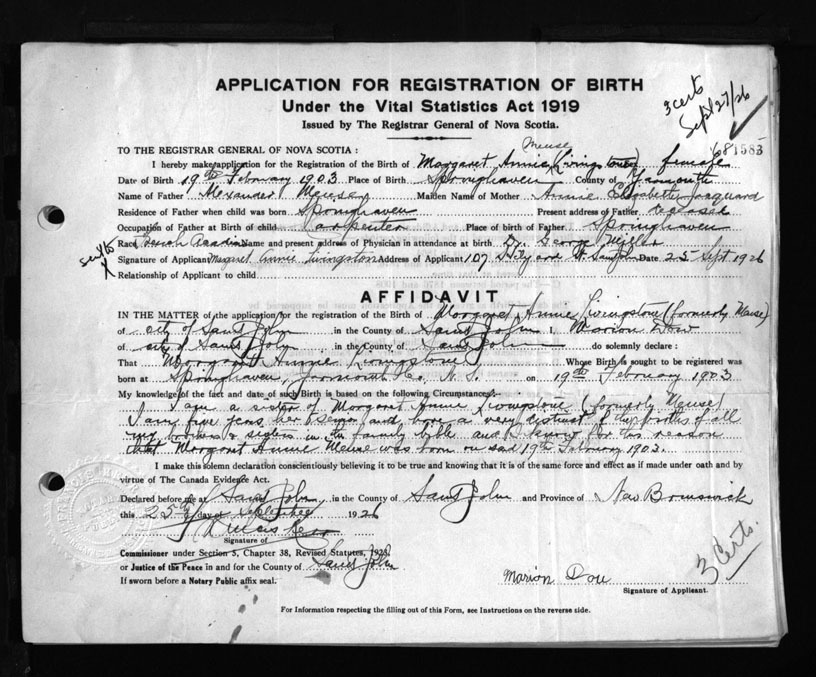 APPLICATION FOR REGISTRATION OF BIRTH
Under the Vital Statistics Act 1919
Issued by The Registrar General of Nova Scotia.
3 certs
Sept 27/26
681583
Meuse
TO THE REGISTRAR GENERAL OF NOVA SCOTIA :
I hereby make application for the Registration of the Birth of Margaret Annie (Livingstone) female
Date of Birth 19th February 1903 Place of Birth Springhaven County of Yarmouth
Name of Father Alexander Meuse Maiden Name of Mother Annie Elizabeth Jaquard
Residence of Father when child was born Springhaven Present address of Father
Occupation of Father at Birth of child Carpenter Place of birth of Father Springhaven
Race French Name and present address of Physician in attendance at birth Dr. George
Signature of Applicant Margaret Annie Livingston Address of Applicant 107 Date 25 Sept 1926
Relationship of Applicant to child
AFFIDAVIT
IN THE MATTER of the application for the registration of the Birth of Margaret Annie Livingstone (formerly Meuse)
of city of Saint John in the County of Saint John I, Marion Dow
of city of Saint John in the County of Saint John do solemnly declare :
That Margaret Annie Livingstone Whose Birth is sought to be registered was
born at Springhaven, Yarmouth Co. N. S. on 19th February 1903
My knowledge of the fact and date of such Birth is based on the following Circumstances :
I am a sister of Margaret Annie Livingstone (formerly Meuse)
I am five years her senior and have a very distinct of the births of all
my brothers & sisters in the family bible and I know for this reason
that Margaret Annie Meuse was born on said 19th February 1903.
I make this solemn declaration conscientiously believing it to be true and knowing that it is of the same force and effect as if made under oath and by
virtue of The Canada Evidence Act.
Declared before me at Saint John, in the County of Saint John and Province of New Brunswick
this 25th day of September 1926
Signature of
Commissioner under Section 5, Chapter 38, Revised Statutes, 1923,
or Justice of the Peace in and for the County of Saint John
If sworn before a Notary Public affix seal.
Marion Dow
Signature of Applicant.
3 Certs.
For Information respecting the filling out of this Form, see Instructions on the reverse side.